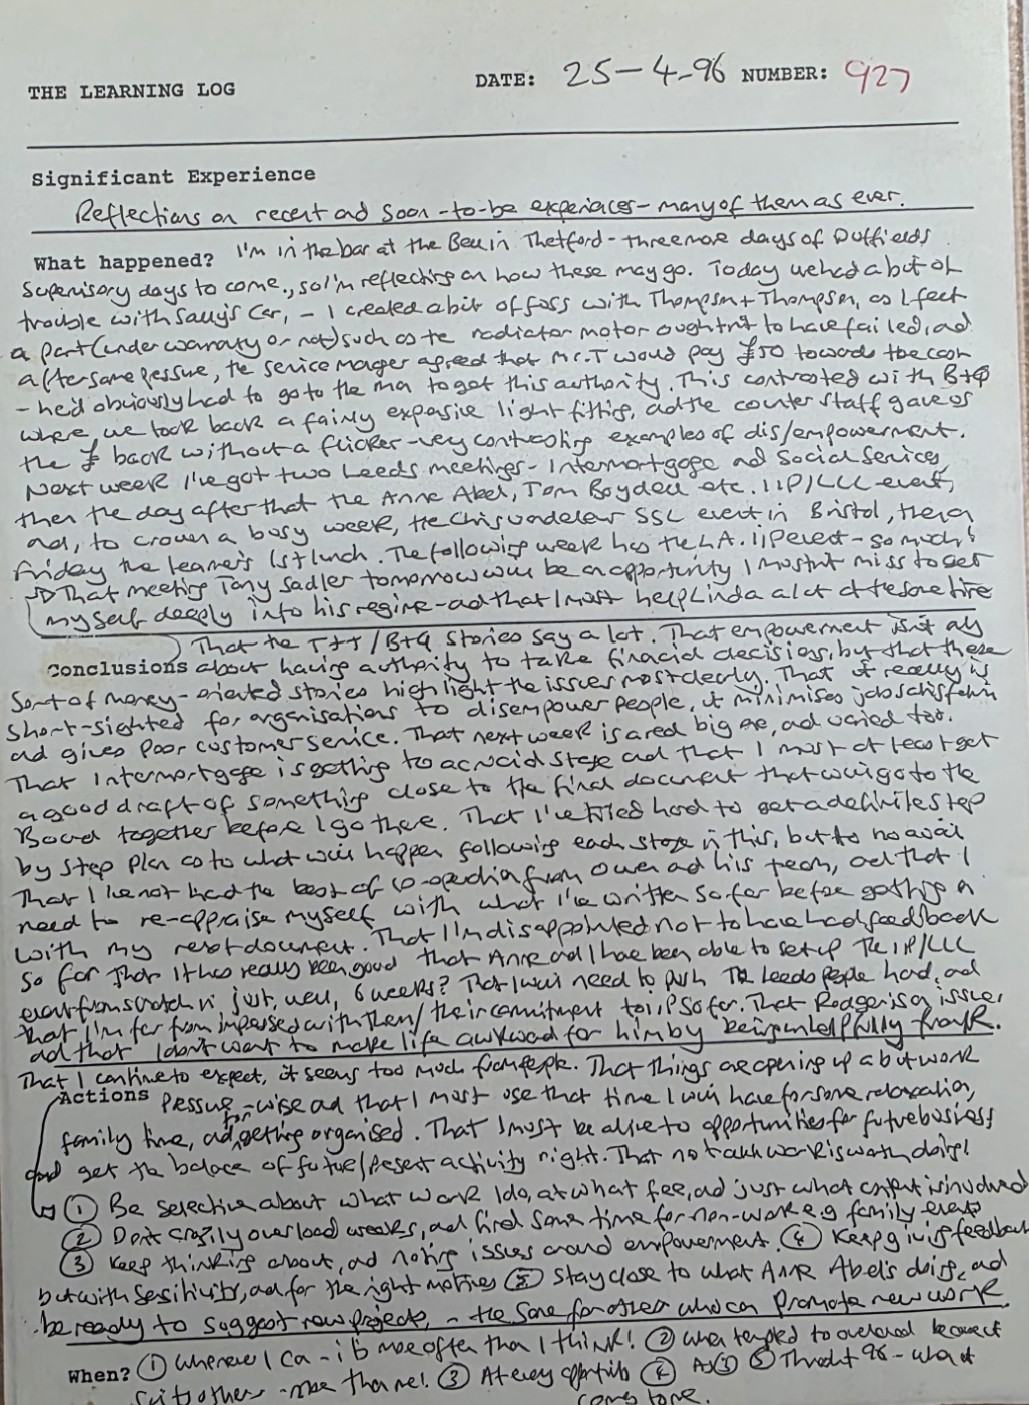 THE LEARNING LOG DATE: 25-4-96 NUMBER: 927
Significant Experience
Reflections on recent and soon-to-be experiences - many of them as ever.
What happened? I'm in the bar at the Bell in Thetford - three more days of Duffields
Supervisory days to come, so I'm reflecting on how these may go. Today we had a bit of
trouble with Sally's Car, - I created a bit of fuss with Thompson + Thompson, as I felt
a part (under warranty or not) such as the radiator motor oughtn't to have failed, and
after some pressure, the service manager agreed that Mr. T would pay £50 towards the cost
- he'd obviously had to go to the man to get this authority. This contrasted with B+Q
where we took back a fairly expensive light fitting, and the counter staff gave us
the £ back without a flicker - very contrasting examples of dis/empowerment.
Next week I've got two Leeds meetings - Intermortgage and Social Services,
then the day after that the Anne Abel, Tom Boydell etc. IIP/LLC event,
and, to crown a busy week, the Chis SSL event in Bristol, then a
Friday the learner's 1st lunch. The following week has the LA. IIP event - so much!
That meeting Tony Sadler tomorrow will be an opportunity I mustn't miss to get
myself deeply into his regime - and that I must help Linda a lot at the same time
That the T+T/B+Q stories say a lot. That empowerment isn't only
Conclusions about having authority to take financial decisions, but that these
Sort of money-oriented stories highlight the issues most clearly. That it really is
short-sighted for organisations to disempower people, it minimises job satisfaction
and gives poor customer service. That next week is a real big one, and varied too.
That Intermortgage is getting to a crucial stage and that I must at least get
a good draft of something close to the final document that will go to the
Board together before I go there. That I've tried hard to get a definite step
by step plan as to what will happen following each stage in this, but to no avail
That I've not had the best of co-operation from Owen and his team, and that I
need to re-appraise myself with what I've written so far before getting on
with my next document. That I'm disappointed not to have had feedback
so far That it has really been good that Anne and I have been able to set up the IIP/LLC
event from scratch in just, well, 6 weeks? That I will need to push The Leeds people hard, and
that I'm far from impressed with them/their commitment to IIP so far. That Rodger is an issue,
and that I don't want to make life awkward for him by being unhelpfully frank.
That I continue to expect, it seems too much from people. That things are opening up a bit work
Actions pressure-wise and that I must use that time I will have for some relaxation,
family time, and for getting organised. That I must be alive to opportunities for future business
and get the balance of future/present activity right. That not all work is worth doing!
① Be selective about what work I do, at what fee, and just what content is involved
② Don't crazily overload weeks, and find some time for non-work e.g family events
③ Keep thinking about, and noting issues around empowerment. ④ Keep giving feedback
but with sensitivity, and for the right motives ⑤ Stay close to what Anne Abel's doing, and
be ready to suggest new projects, - the same for others who can promote new work
When? ① Whenever I can - it's more often than I think! ② When tempted to overload because it
suits others - more than me! ③ At every opportunity ④ As ③ ⑤ Throughout 96 - what
comes to me.